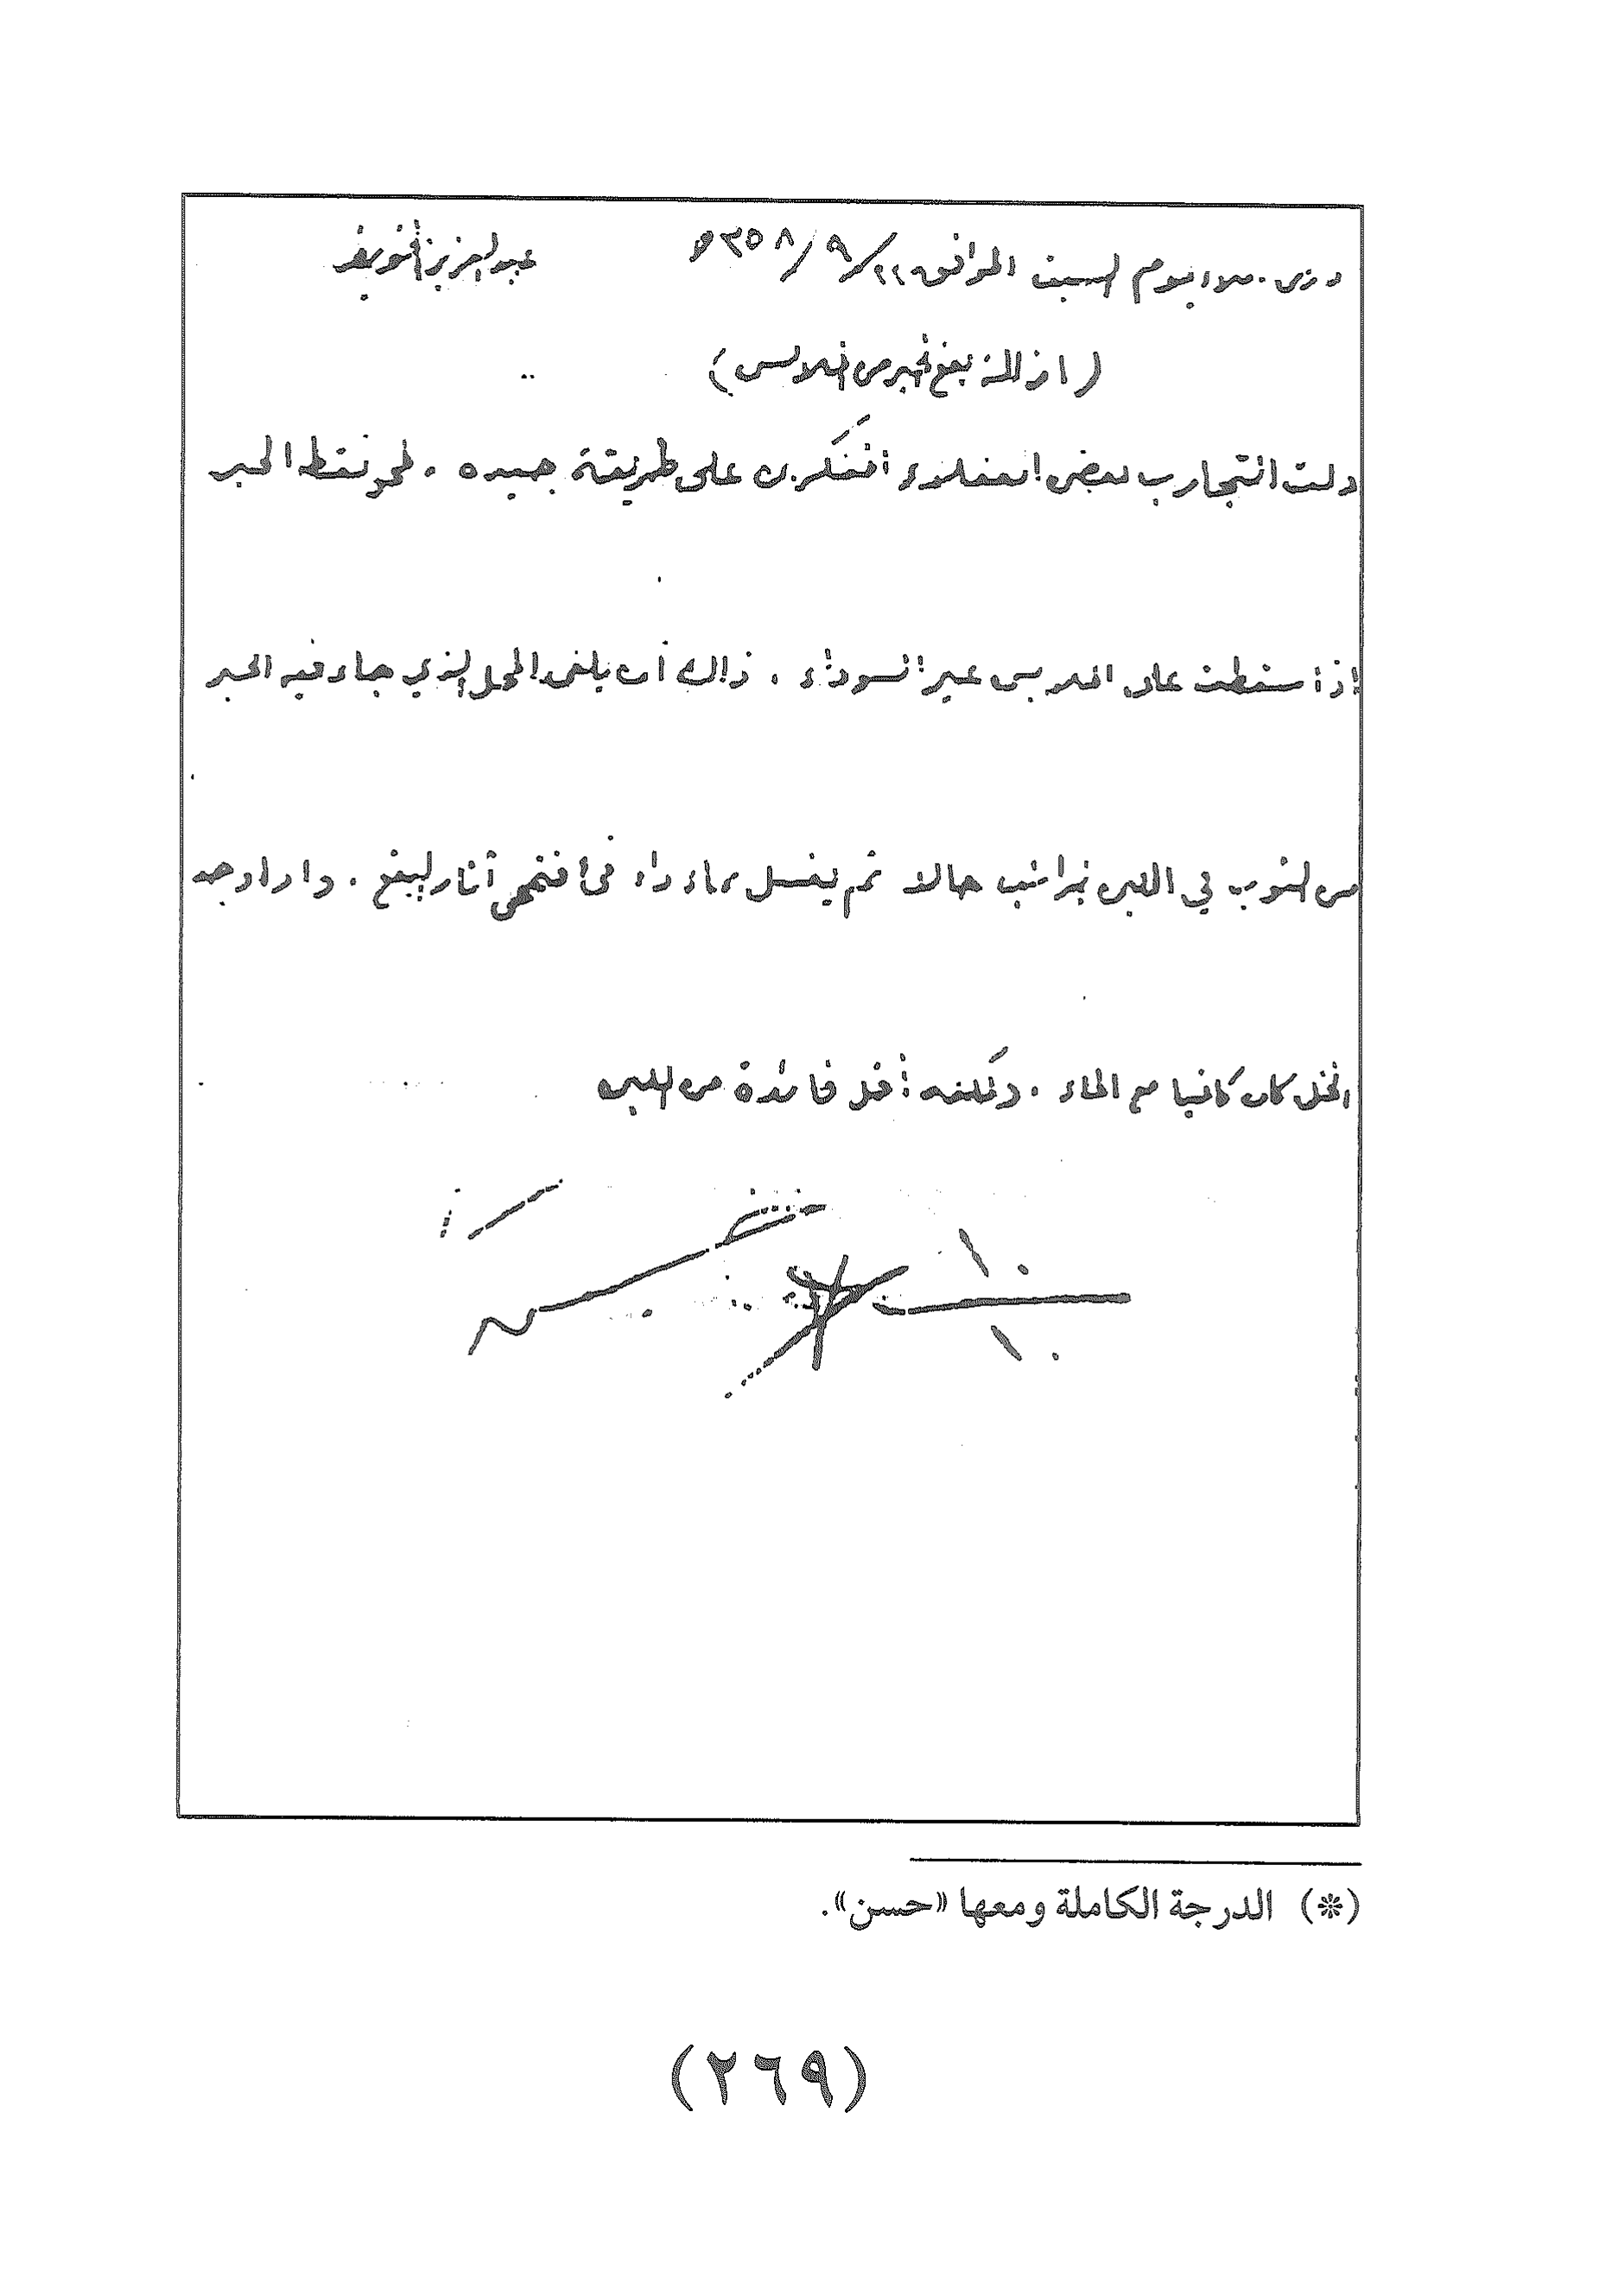 درس املاء يوم السبت الموافق ٢٢/٩/٣٥٨ عبدالعزيز الخويطر
(ازالة بقع الحبر من الملابس)
دلت التجارب بعض العقلاء المفكرين على طريقة جيده . لمحو نقط الحبر
إذا سقطت على الملابس غير السوداء . ذالك أن يلقى المحل الذي جاء فيه الحبر
من الثوب في اللبن الرائب حالا ثم يغسل بماء دافئ فتمحى آثار البقع . واذا وجد
الخل كان كافيا مع الماء . ولكنه أقل فائدة من اللبن
١٠
١٠
(*) الدرجة الكاملة ومعها «حسن».
(٢٦٩)